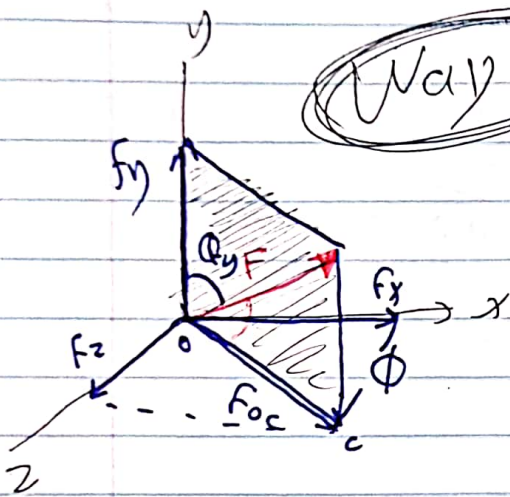 y
Way
Fy
θy F
Fx
x
O
Fz
ϕ
Foc
c
z